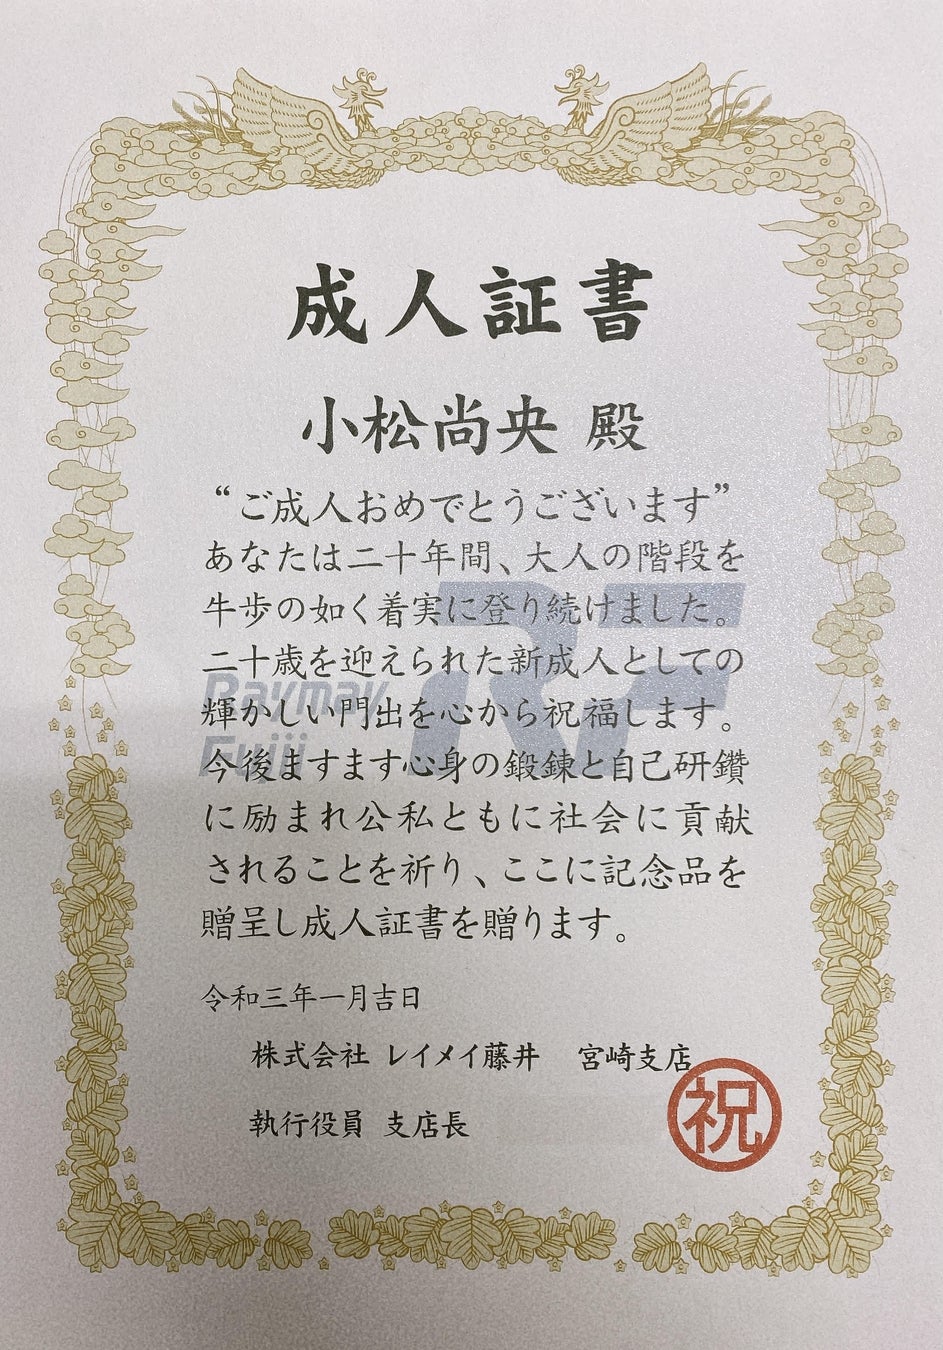 成人証書
小松尚央 殿
“ご成人おめでとうございます”
あなたは二十年間、大人の階段を
牛歩の如く着実に登り続けました。
二十歳を迎えられた新成人としての
輝かしい門出を心から祝福します。
今後ますます心身の鍛錬と自己研鑽
に励まれ公私ともに社会に貢献
されることを祈り、ここに記念品を
贈呈し成人証書を贈ります。
RF
Raymay
Fujii
令和三年一月吉日
株式会社 レイメイ藤井 宮崎支店
執行役員 支店長
祝